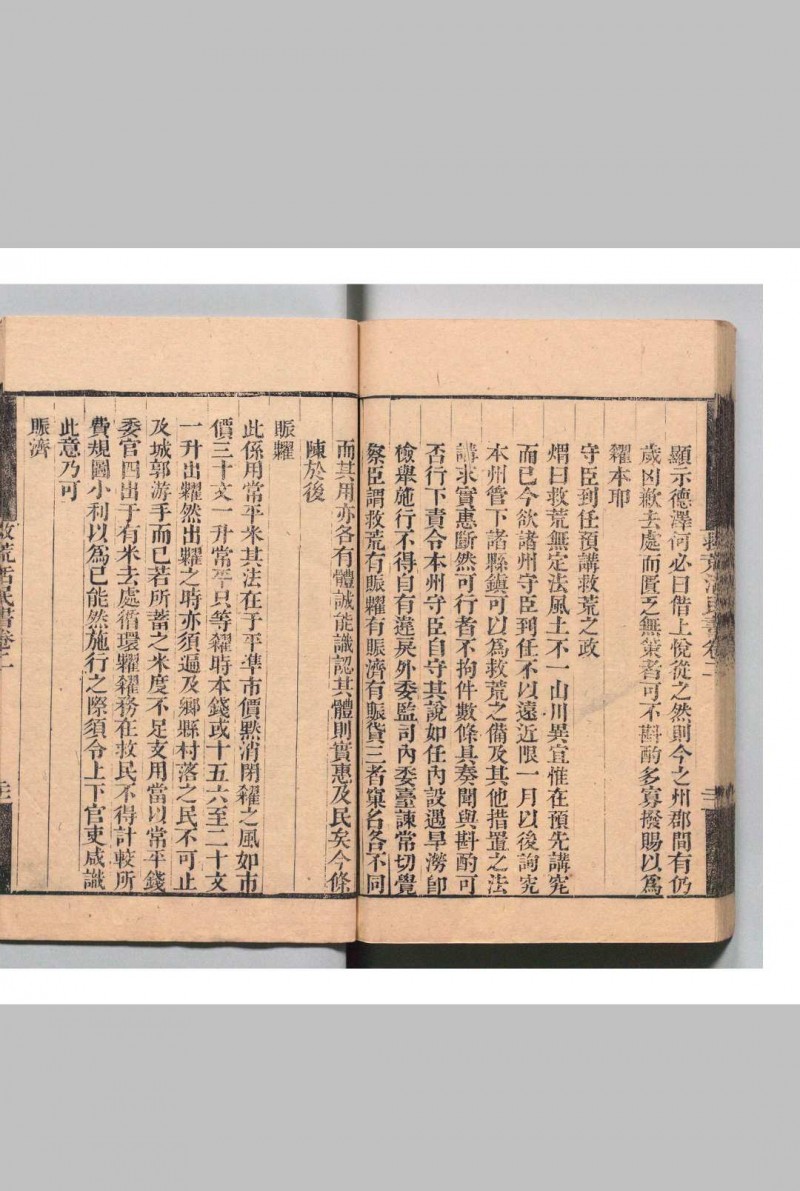 顯示德澤何必曰借上悅從之然則今之州郡間有仍
歲凶歉去處而匱乏無策者可不斟酌多寡撥賜以為
糴本耶
守臣到任預講救荒之政
煟曰救荒無定法風土不一山川異宜惟在預先講究
而已今欲諸州守臣到任不以遠近限一月以後詢究
本州管下諸縣鎮可以為救荒之備及其他措置之法
講求實惠斷然可行者不拘件數條具奏聞與斟酌可
否行下責令本州守臣自守其說如任內設遇旱澇卽
檢舉施行不得自有違戾外委監司內委臺諫常切覺
察臣謂救荒有賑糶有賑濟有賑貸三者窠名各不同
而其用亦各有體誠能識認其體則實惠及民矣今條
陳於後
賑糶
此係用常平米其法在于平準市價默消閉糴之風如市
價三十文一升常平只等糴時本錢或十五六至二十文
一升出糶然出糶之時亦須遍及鄉縣村落之民不可止
及城郭游手而已若所蓄之米度不足支用當以常平錢
委官四出于有米去處循環糶糴務在救民不得計較所
費規圖小利以為己能然施行之際須令上下官吏咸識
此意乃可
賑濟
救荒活民書卷二